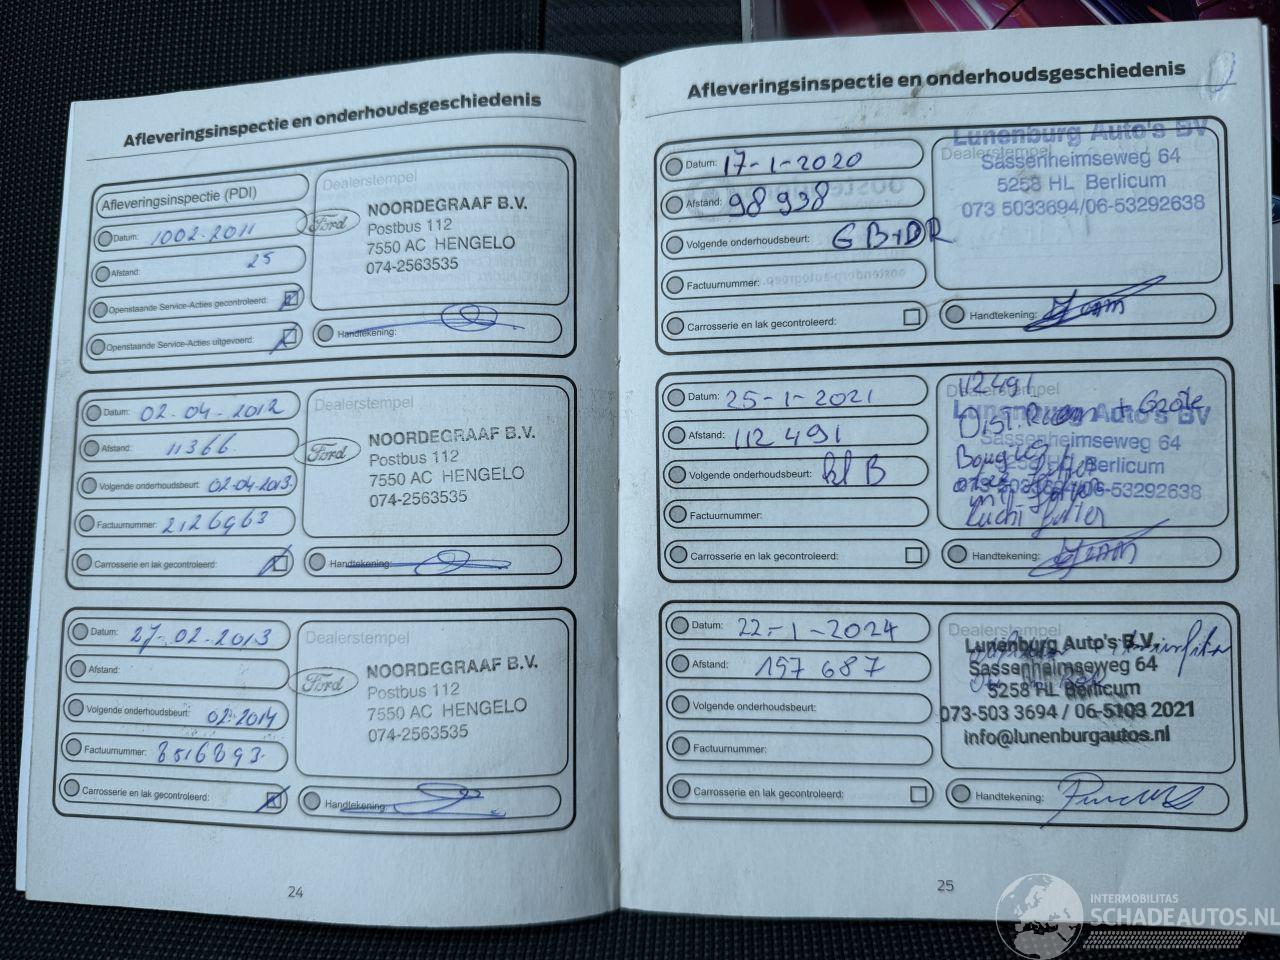 Afleveringsinspectie en onderhoudsgeschiedenis
Afleveringsinspectie (PDI)
Datum: 1002-2011
Afstand: 25
Openstaande Service-Acties gecontroleerd:
Openstaande Service-Acties uitgevoerd:
Dealerstempel
Ford
NOORDEGRAAF B.V.
Postbus 112
7550 AC HENGELO
074-2563535
Handtekening:
Datum: 02-04-2012
Afstand: 11366
Volgende onderhoudsbeurt: 02-04-2013
Factuurnummer: 2126963
Carrosserie en lak gecontroleerd:
Dealerstempel
Ford
NOORDEGRAAF B.V.
Postbus 112
7550 AC HENGELO
074-2563535
Handtekening:
Datum: 27-02-2013
Afstand:
Volgende onderhoudsbeurt: 02-2014
Factuurnummer: 8516893
Carrosserie en lak gecontroleerd:
Dealerstempel
Ford
NOORDEGRAAF B.V.
Postbus 112
7550 AC HENGELO
074-2563535
Handtekening:
24
Afleveringsinspectie en onderhoudsgeschiedenis
Datum: 17-1-2020
Afstand: 98938
Volgende onderhoudsbeurt: GB+DR
Factuurnummer:
Carrosserie en lak gecontroleerd:
Dealerstempel
Lunenburg Auto's BV
Sassenheimseweg 64
5258 HL Berlicum
073 5033694/06-53292638
Handtekening:
Datum: 25-1-2021
Afstand: 112491
Volgende onderhoudsbeurt: kl B
Factuurnummer:
Carrosserie en lak gecontroleerd:
Dealerstempel
112491
Lunenburg Auto's BV
Dist. Riem + Grote
Sassenheimseweg 64
5258 HL Berlicum
073 5033694/06-53292638
Handtekening:
Datum: 22-1-2024
Afstand: 157687
Volgende onderhoudsbeurt:
Factuurnummer:
Carrosserie en lak gecontroleerd:
Dealerstempel
Lunenburg Auto's B.V.
Sassenheimseweg 64
5258 HL Berlicum
073-503 3694 / 06-5103 2021
info@lunenburgautos.nl
Handtekening:
25
INTERMOBILITAS
SCHADEAUTOS.NL